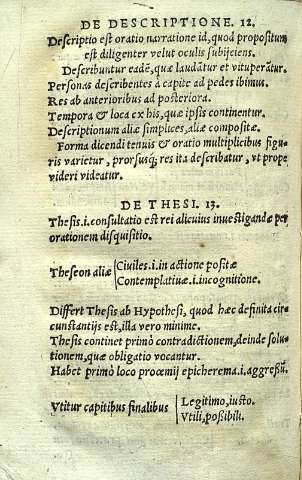 DE DESCRIPTIONE. 12.
Descriptio est oratio narratione id, quod propositum
est diligenter velut oculis subijciens.
Describuntur eadē, quæ laudātur et vituperātur.
Personas describentes à capite ad pedes ibimus.
Res ab anterioribus ad posteriora.
Tempora & loca ex his, quæ ipsis continentur.
Descriptionum aliæ simplices, aliæ compositæ.
Forma dicendi tenuis & oratio multiplicibus figu-
ris varietur, prorsusq; res ita describatur, vt prope
videri videatur.
DE THESI. 13.
Thesis .i. consultatio est rei alicuius inuestigandæ per
orationem disquisitio.
Theseon aliæ
Ciuiles .i. in actione positæ
Contemplatiuæ .i. incognitione.
Differt Thesis ab Hypothesi, quod hæc definita cir-
cunstantijs est, illa vero minime.
Thesis continet primò contradictionem, deinde solu-
tionem, quæ obligatio vocantur.
Habet primò loco procemij epicherema .i. aggressū.
Vtitur capitibus finalibus
Legitimo, iusto.
Vtili, possibili.